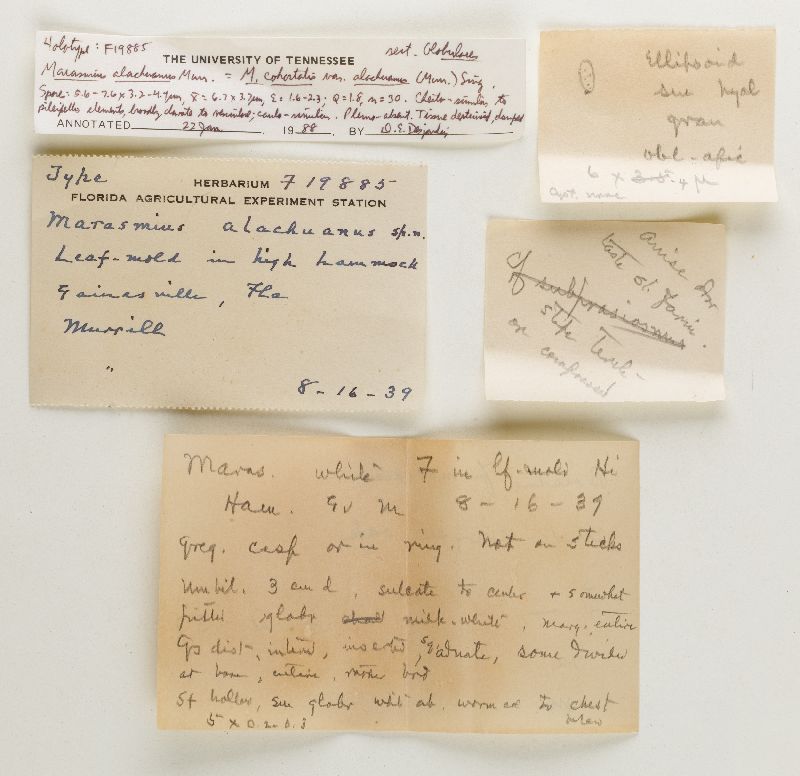 Holotype: F19885
sect. Globulares
THE UNIVERSITY OF TENNESSEE
Marasmius alachuanus Murr. = M. cohortalis var. alachuanus (Murr.) Sing.
Spores: 5.6-7.6 x 3.2-4.4µm, x̄ = 6.7 x 3.7µm, E = 1.6-2.3, Q=1.8, n=30. Cheilo-similar to
pileipellis elements, broadly clavate to vesiculose; caulo-similar. Pleuro-absent. Tissue
ANNOTATED 22 Jan 1988, BY D.E. Desjardin
Type
HERBARIUM F 19885
FLORIDA AGRICULTURAL EXPERIMENT STATION
Marasmius alachuanus sp. n.
Leaf-mold in high hammock
Gainesville, Fla
Murrill
"
8-16-39
Ellipsoid
sm hyal
gran
obl-apic
6 x 3.5-4 µ
cyst. none
anise odor
taste sl. farin.
Cf subprasiosmus
stipe
or compressed
Maras. white F in lf-mold Hi
Ham. Gv M 8-16-39
Greg. cesp or in ring. Not on sticks
Umbil. 3 cm d, sulcate to center + somewhat
glabr milk-white, marg. entire
Gs dist, inserted, some divided
at base, entire,
St hollow, sm glabr whit ab, to chest
below
5 x 0.2-0.3